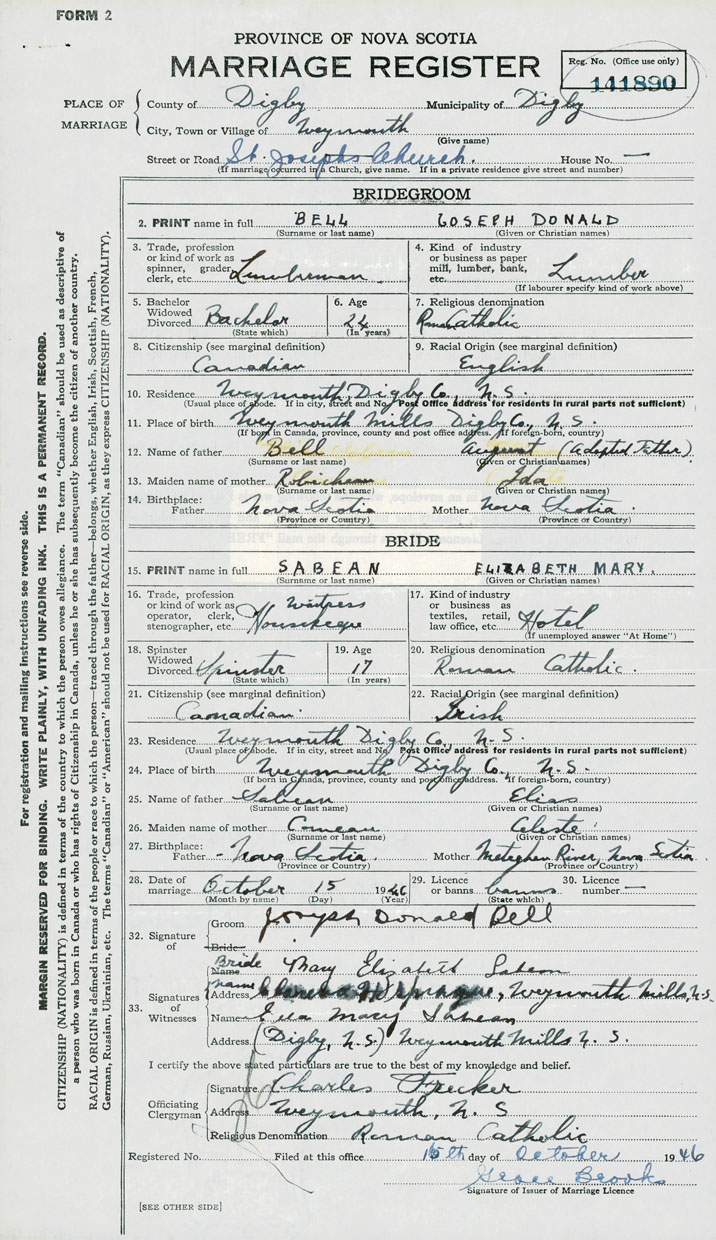 FORM 2
PROVINCE OF NOVA SCOTIA
MARRIAGE REGISTER
Reg. No. (Office use only)
141890
PLACE OF MARRIAGE
County of Digby Municipality of Digby
City, Town or Village of Weymouth
(Give name)
Street or Road St. Josephs Church. House No. —
(If marriage occurred in a Church, give name. If in a private residence give street and number)
BRIDEGROOM
2. PRINT name in full BELL JOSEPH DONALD
(Surname or last name) (Given or Christian names)
3. Trade, profession or kind of work as spinner, grader, clerk, etc. Lumberman
4. Kind of industry or business as paper mill, lumber, bank, etc. Lumber
(If labourer specify kind of work above)
5. Bachelor Widowed Divorced Bachelor
(State which)
6. Age 24
(In years)
7. Religious denomination
Roman Catholic
8. Citizenship (see marginal definition)
Canadian
9. Racial Origin (see marginal definition)
English
10. Residence Weymouth, Digby Co., N.S.
(Usual place of abode. If in city, street and No. Post Office address for residents in rural parts not sufficient)
11. Place of birth Weymouth Mills Digby Co., N.S.
(If born in Canada, province, county and post office address. If foreign-born, country)
12. Name of father Bell August (Adopted Father)
(Surname or last name) (Given or Christian names)
13. Maiden name of mother Robichaux Ida
(Surname or last name) (Given or Christian names)
14. Birthplace: Father Nova Scotia Mother Nova Scotia
(Province or Country) (Province or Country)
BRIDE
15. PRINT name in full SABEAN ELIZABETH MARY.
(Surname or last name) (Given or Christian names)
16. Trade, profession or kind of work as operator, clerk, stenographer, etc. Waitress
17. Kind of industry or business as textiles, retail, law office, etc. Hotel
(If unemployed answer "At Home")
18. Spinster Widowed Divorced Spinster
(State which)
19. Age 17
(In years)
20. Religious denomination
Roman Catholic.
21. Citizenship (see marginal definition)
Canadian.
22. Racial Origin (see marginal definition)
Irish
23. Residence Weymouth Digby Co., N.S.
(Usual place of abode. If in city, street and No. Post Office address for residents in rural parts not sufficient)
24. Place of birth Weymouth Digby Co., N.S.
(If born in Canada, province, county and post office address. If foreign-born, country)
25. Name of father Sabean Elias
(Surname or last name) (Given or Christian names)
26. Maiden name of mother Comeau Celeste
(Surname or last name) (Given or Christian names)
27. Birthplace: Father - Nova Scotia Mother Meteghan River, Nova Scotia
(Province or Country) (Province or Country)
28. Date of marriage October 15 1946
(Month by name) (Day) (Year)
29. Licence or banns banns
(State which)
30. Licence number —
32. Signature of
Groom Joseph Donald Bell
Bride
Bride
Name Mary Elizabeth Sabean
33. Signatures of Witnesses
name
Address Sprague, Weymouth Mills, N.S.
Name Eva Mary Sabean
Address (Digby, N.S.) Weymouth Mills N.S.
I certify the above stated particulars are true to the best of my knowledge and belief.
Officiating Clergyman
Signature Charles Frecker
Address Weymouth, N.S
Religious Denomination Roman Catholic
Registered No. Filed at this office 15th day of October 1946
Grace Brooks
Signature of Issuer of Marriage Licence
[SEE OTHER SIDE]
For registration and mailing instructions see reverse side.
MARGIN RESERVED FOR BINDING. WRITE PLAINLY, WITH UNFADING INK. THIS IS A PERMANENT RECORD.
CITIZENSHIP (NATIONALITY) is defined in terms of the country to which the person owes allegiance. The term "Canadian" should be used as descriptive of
a person who was born in Canada or who has rights of Citizenship in Canada, unless he or she has subsequently become the citizen of another country.
RACIAL ORIGIN is defined in terms of the people or race to which the person—traced through the father—belongs, whether English, Irish, Scottish, French,
German, Russian, Ukrainian, etc. The terms "Canadian" or "American" should not be used for RACIAL ORIGIN, as they express CITIZENSHIP (NATIONALITY).